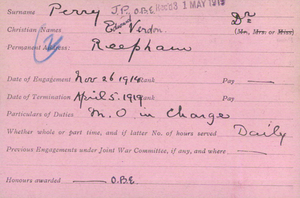 Surname Perry J.P. O.B.E. 31 MAY 1919 Dr
Christian Names Edward E. Verdon (Mr., Mrs. or Miss)
Permanent Address: Reepham
Date of Engagement Nov 26 1914 Rank Pay
Date of Termination April 5. 1919 Rank Pay
Particulars of Duties M.O. in Charge
Whether whole or part time, and if latter No. of hours served Daily
Previous Engagements under Joint War Committee, if any, and where
Honours awarded O.B.E.